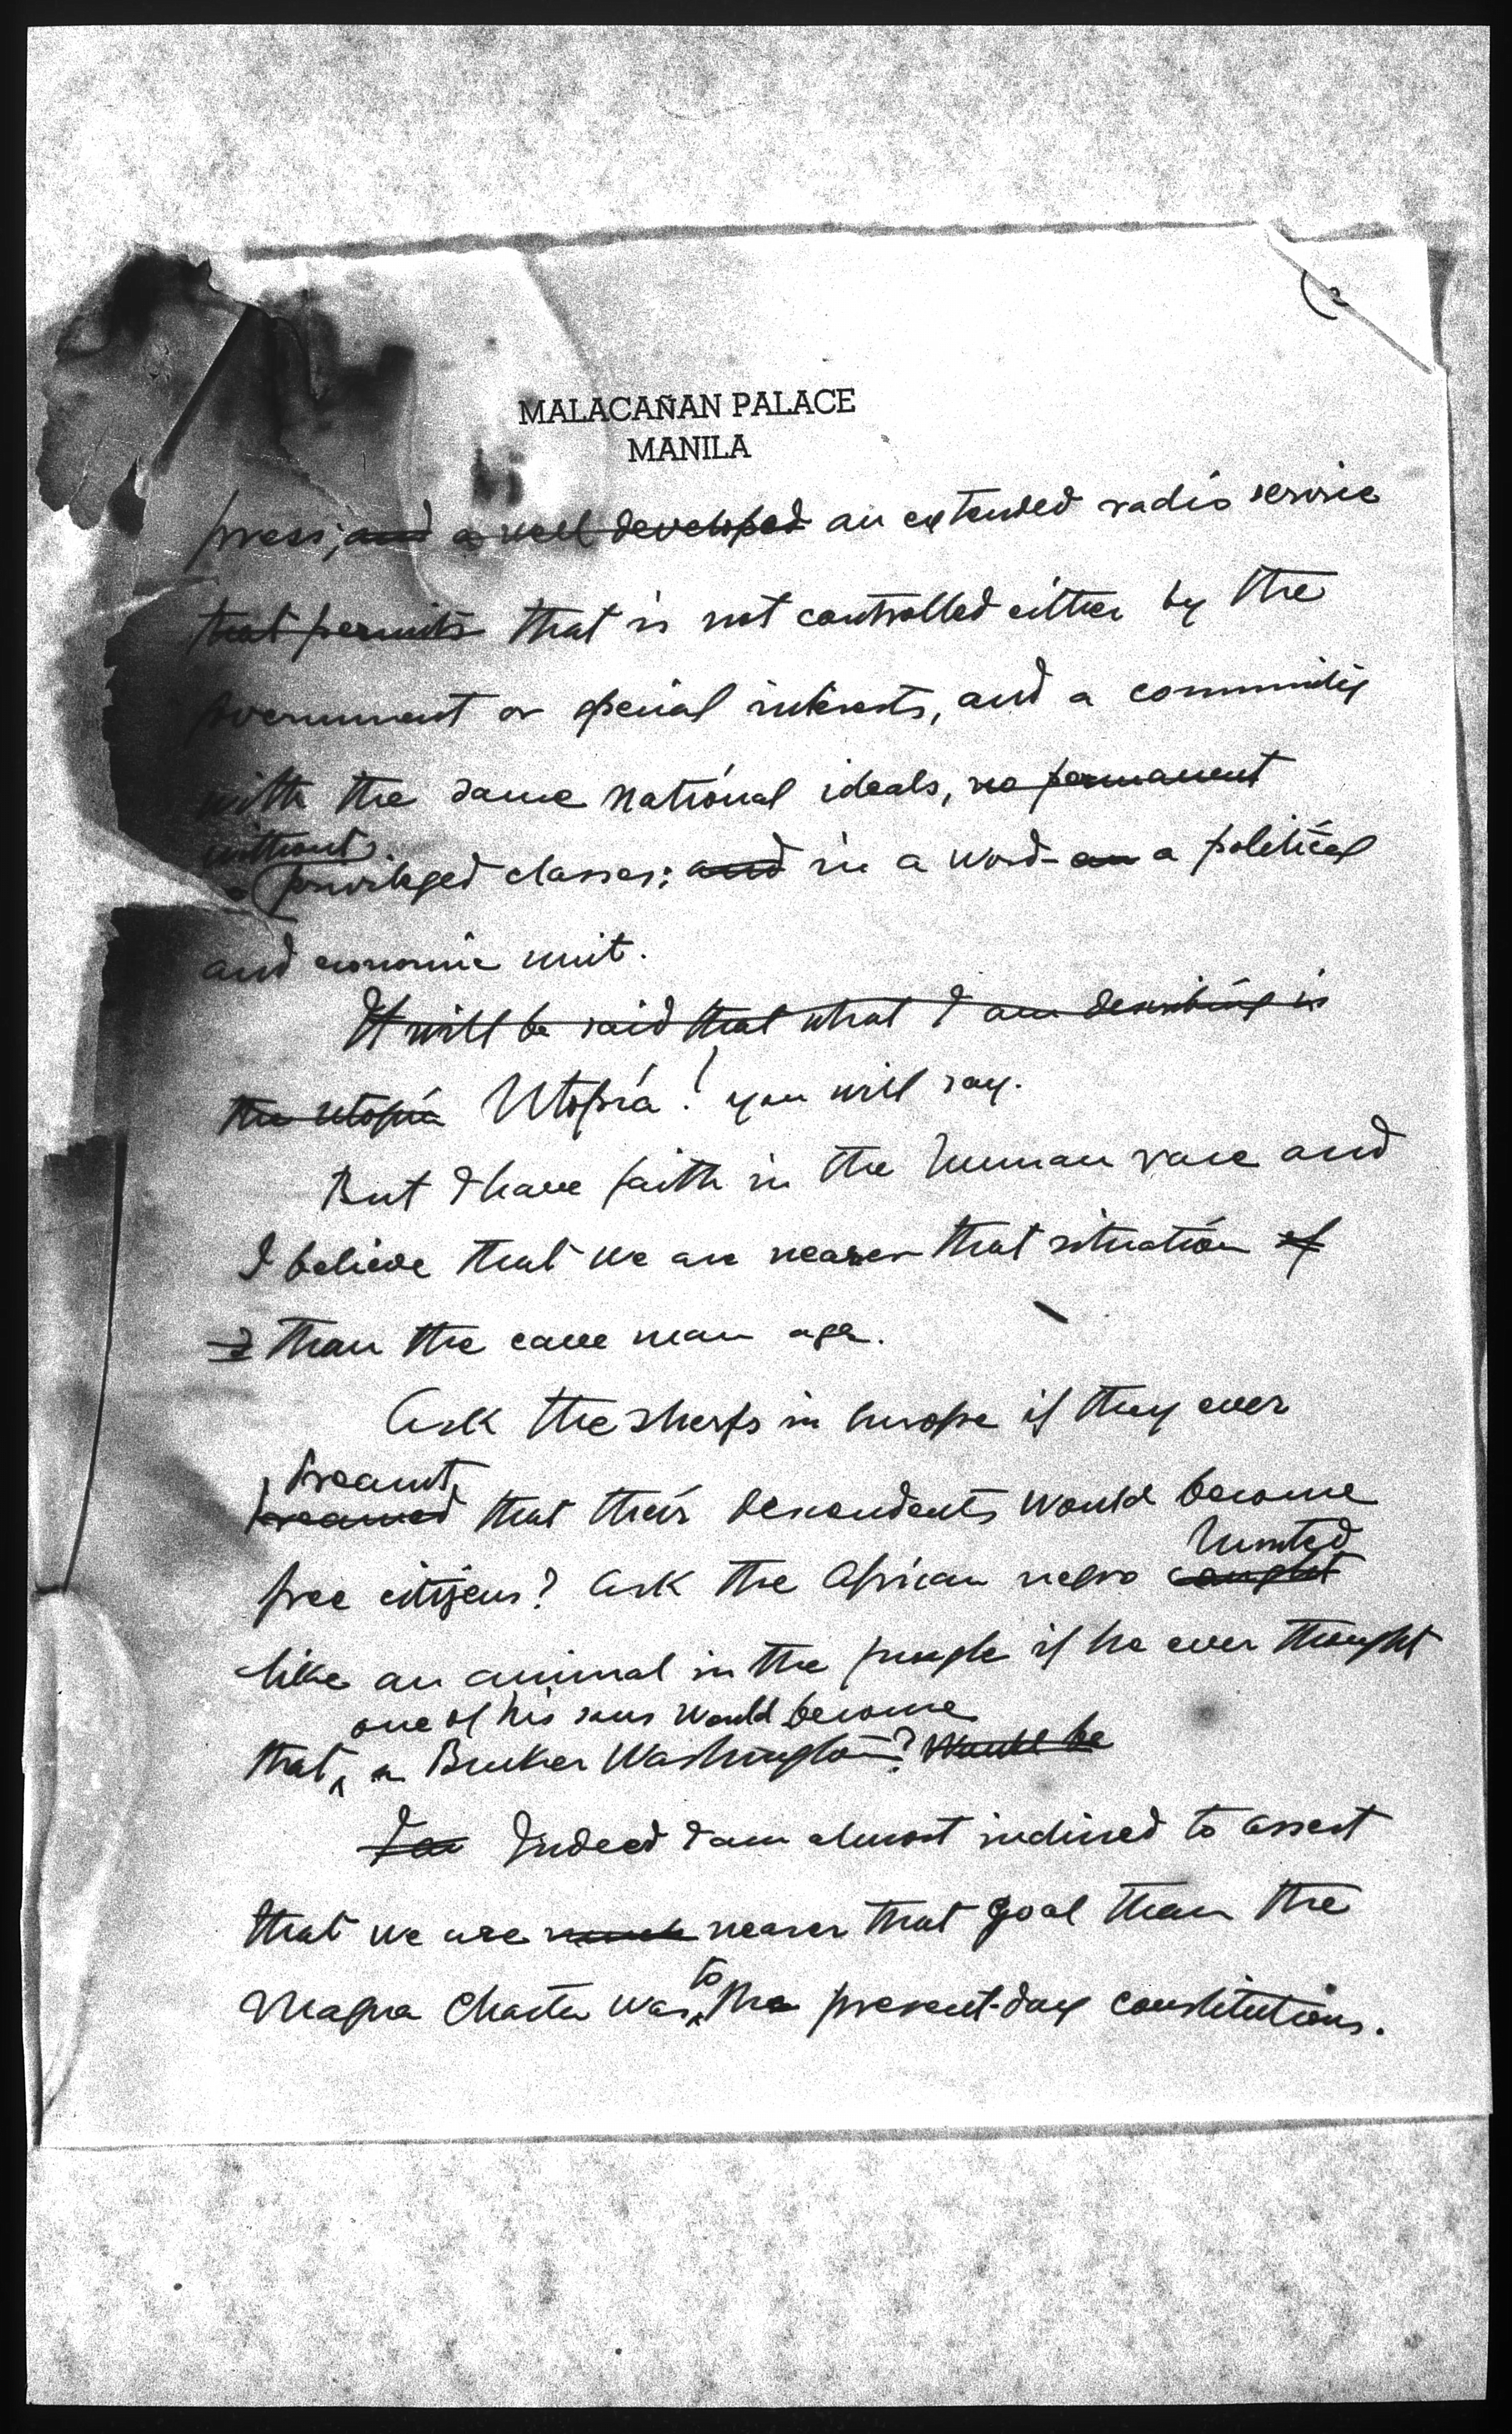 (2
MALACAÑAN PALACE
MANILA
press; and a well developed an extended radio service
that permits that is not controlled either by the
government or special interests, and a community
with the same national ideals, no permanent
without
privileged classes; and in a word - an a political
and economic unit.
It will be said that what I am describing is
the Utopia Utopia! you will say.
But I have faith in the human race and
I believe that we are nearer that situation of
than the cave man age.
Ask the sherfs in Europe if they ever
dreamt
dreamed that their descendents would become
hunted
free citizens? Ask the African negro caught
like an animal in the jungle if he ever thought
one of his sons would become
that a Bucker Washington? Would be
I am Indeed I am almost inclined to assert
that we are much nearer that goal than the
to
Magna Charta was the present-day constitutions.